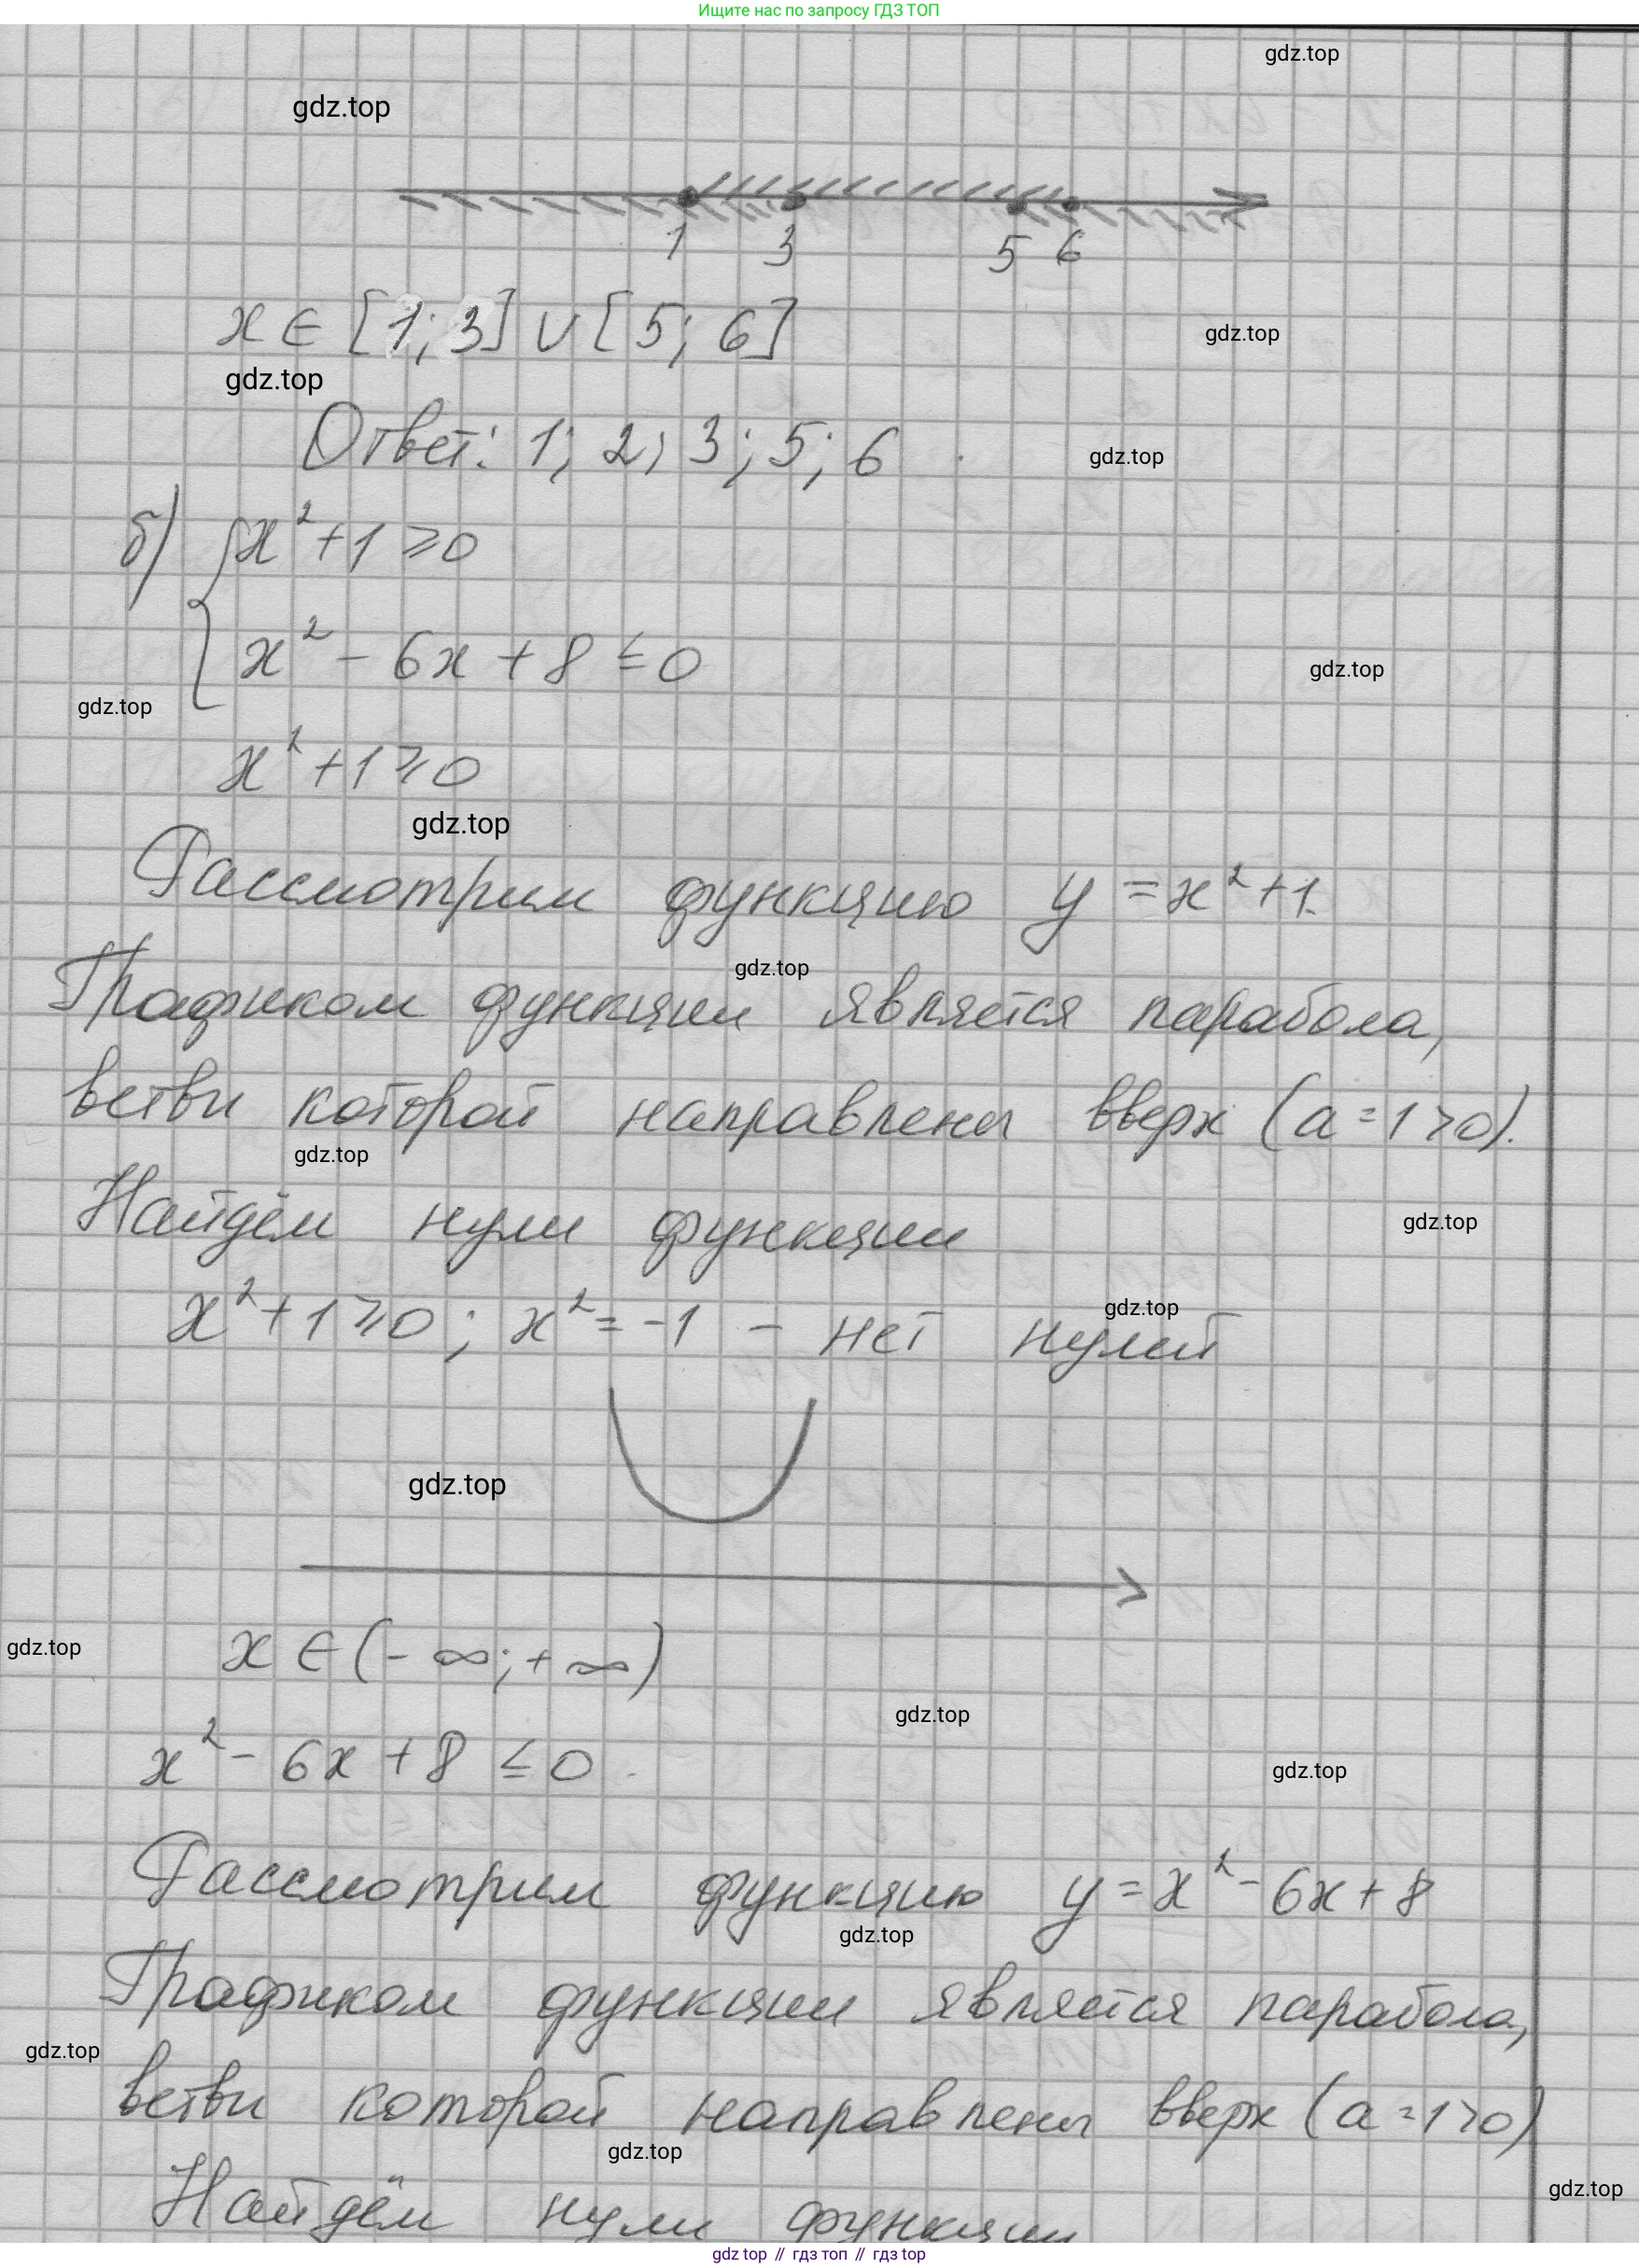 Ищите нас по запросу ГДЗ ТОП
gdz.top
gdz.top
1 3 5 6
x ∈ [1; 3] ∪ [5; 6]
gdz.top
gdz.top
Ответ: 1; 2; 3; 5; 6
gdz.top
б) { x² + 1 ≥ 0
x² - 6x + 8 ≤ 0
gdz.top
gdz.top
x² + 1 ≥ 0
gdz.top
Рассмотрим функцию y = x² + 1.
gdz.top
Графиком функции является парабола,
ветви которой направлены вверх (a = 1 > 0).
gdz.top
Найдём нули функции
gdz.top
gdz.top
x² + 1 ≥ 0; x² = -1 - нет нулей
gdz.top
x ∈ (-∞; +∞)
gdz.top
gdz.top
x² - 6x + 8 ≤ 0
gdz.top
Рассмотрим функцию y = x² - 6x + 8
gdz.top
Графиком функции является парабола,
gdz.top
ветви которой направлены вверх (a = 1 > 0)
gdz.top
gdz.top
Найдём нули функции
gdz top // гдз топ // гдз top